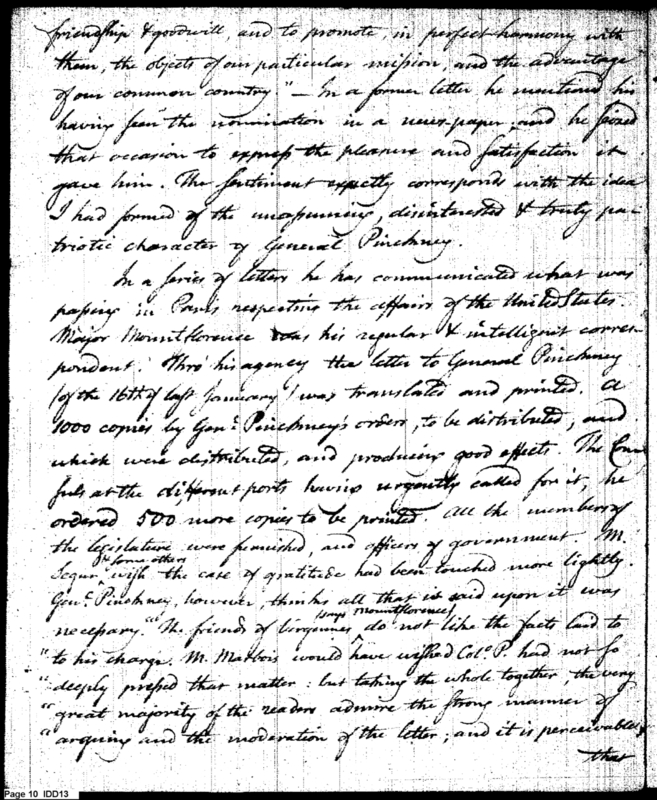 friendship & goodwill, and to promote, in perfect harmony with
them, the objects of our particular mission, and the advantage
of our common country" — In a former letter he mentioned his
having seen the nomination in a news-paper, and he seized
that occasion to express the pleasure and satisfaction it
gave him. The sentiment exactly corresponds with the idea
I had formed of the unassuming, disinterested & truly pa-
triotic character of General Pinckney.
In a series of letters he has communicated what was
passing in Paris respecting the affairs of the United States.
Major Mountflorence was his regular & intelligent corres-
pondent. Thro' his agency the letter to General Pinckney
(of the 16th of last January) was translated and printed. A
1000 copies by Genl. Pinckney's orders, to be distributed, and
which were distributed, and producing good effects. The Con
suls at the different ports having urgently called for it, he
ordered 500 more copies to be printed. All the members of
the legislature were furnished, and officers of government. M.
& some others
Segur wish the case of gratitude had been touched more lightly.
Genl. Pinckney, however, thinks all that is said upon it was
(says Mountflorence)
necessary. "The friends of Vergennes do not like the facts laid to
"to his charge. M. Marbois would have wished Colo. P. had not so
"deeply pressed that matter: but taking the whole together, the very
"great majority of the readers admire the strong manner of
"arguing and the moderation of the letter; and it is perceivable
that
Page 10 IDD13